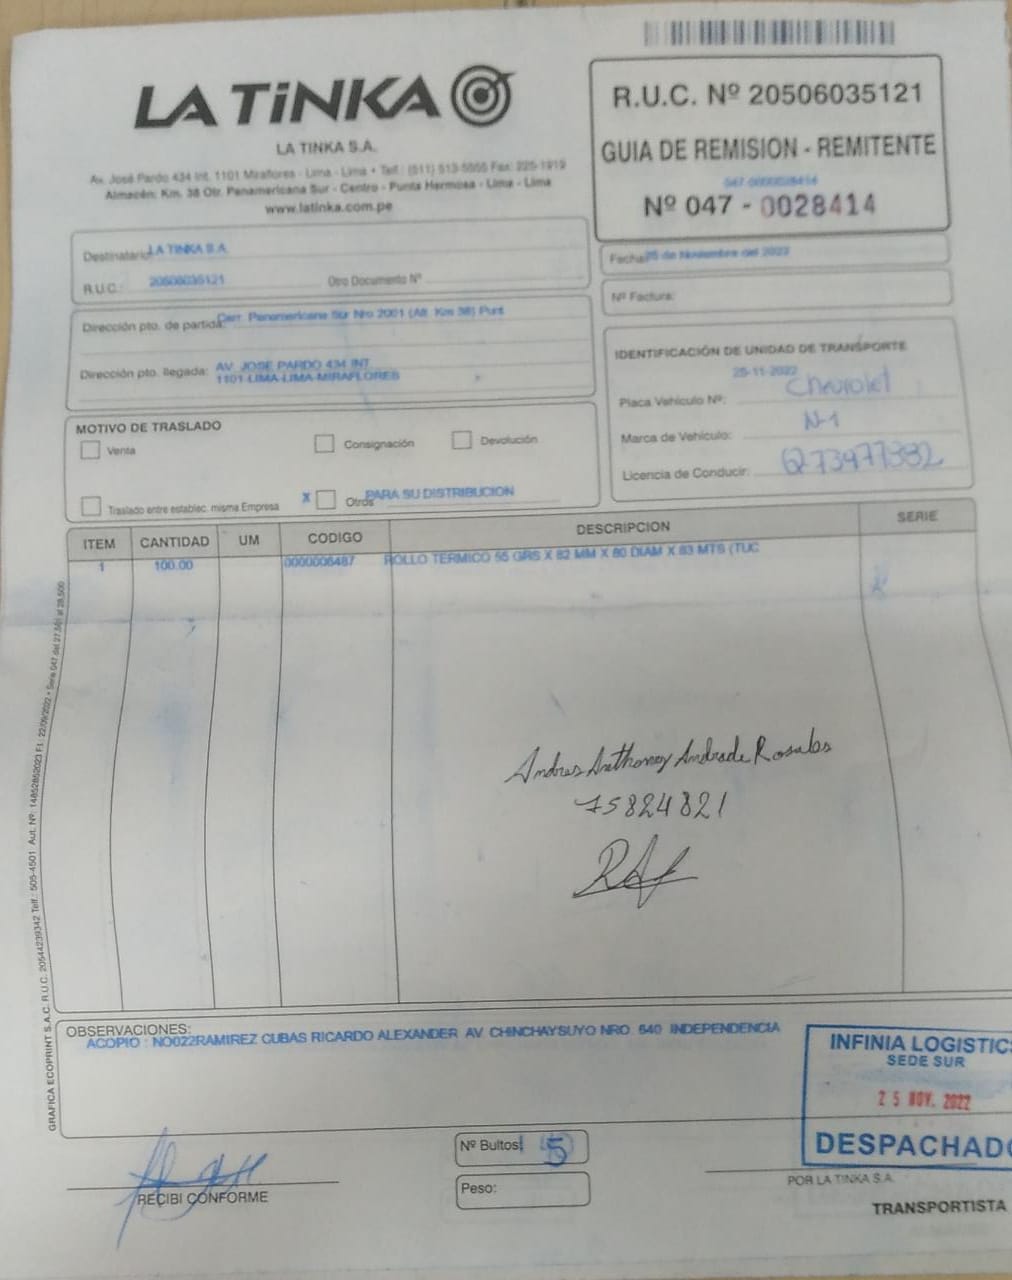 LA TiNKA
LA TINKA S.A.
Av. José Pardo 434 Int. 1101 Miraflores - Lima - Lima • Telf.: (511) 513-5555 Fax: 225-1919
Almacén: Km. 38 Otr. Panamericana Sur - Centro - Punta Hermosa - Lima - Lima
www.latinka.com.pe
R.U.C. Nº 20506035121
GUIA DE REMISION - REMITENTE
047-0000028414
Nº 047 - 0028414
Destinatario: LA TINKA S.A.
R.U.C.: 20506035121 Otro Documento Nº
Fecha: 25 de Noviembre del 2022
Nº Factura:
Dirección pto. de partida: Carr. Panamericana Sur Nro 2001 (Alt. Km 38) Punt
Dirección pto. llegada: AV. JOSE PARDO 434 INT.
1101-LIMA-LIMA-MIRAFLORES
IDENTIFICACIÓN DE UNIDAD DE TRANSPORTE
25-11-2022
Placa Vehículo Nº: Chevrolet
Marca de Vehículo: N-1
Licencia de Conducir: Q73977382
MOTIVO DE TRASLADO
Venta Consignación Devolución
Traslado entre establec. misma Empresa X Otros PARA SU DISTRIBUCION
ITEM CANTIDAD UM CODIGO DESCRIPCION SERIE
1 100.00 0000006487 ROLLO TERMICO 55 GRS X 82 MM X 80 DIAM X 83 MTS (TUC
Andres Anthonny Andrade Rosales
75824821
GRAFICA ECOPRINT S.A.C. R.U.C. 20544239342 Telf.: 505-4501 Aut. Nº: 14852852023 F.I.: 22/09/2022 • Serie 047 del 27,501 al 28,500
OBSERVACIONES:
ACOPIO : NO022RAMIREZ CUBAS RICARDO ALEXANDER AV. CHINCHAYSUYO NRO 640 INDEPENDENCIA
INFINIA LOGISTIC
SEDE SUR
25 NOV. 2022
DESPACHADO
Nº Bultos: 5
Peso:
RECIBI CONFORME
POR LA TINKA S.A.
TRANSPORTISTA